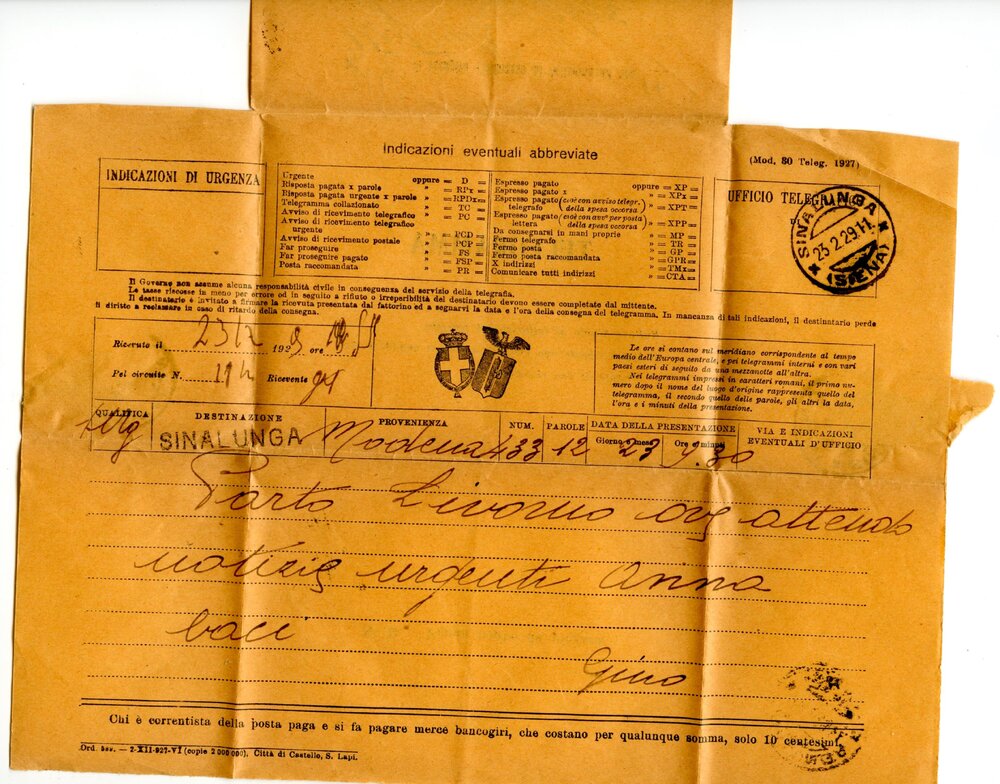 Indicazioni eventuali abbreviate
(Mod. 30 Teleg. 1927)
INDICAZIONI DI URGENZA
Urgente oppure = D =
Risposta pagata x parole » = RPx =
Risposta pagata urgente x parole » = RPDx =
Telegramma collazionato » = TC =
Avviso di ricevimento telegrafico » = PC =
Avviso di ricevimento telegrafico
urgente » = PCD =
Avviso di ricevimento postale » = PCP =
Far proseguire » = FS =
Far proseguire pagato » = FSP =
Posta raccomandata » = PR =
Espresso pagato oppure = XP =
Espresso pagato x » = XPx =
Espresso pagato (cioè con avviso telegr.
telegrafo della spesa occorsa) » = XPT =
Espresso pagato (cioè con avvº per posta
lettera della spesa occorsa) » = XPP =
Da consegnarsi in mani proprie » = MP =
Fermo telegrafo » = TR =
Fermo posta » = GP =
Fermo posta raccomandata » = GPR =
X indirizzi » = TMx =
Comunicare tutti indirizzi » = CTA =
UFFICIO TELEGRAFICO
SINALUNGA
23.2.29.11
(SIENA)
Il Governo non assume alcuna responsabilità civile in conseguenza del servizio della telegrafia.
Le tasse riscosse in meno per errore od in seguito a rifiuto o irreperibilità del destinatario devono essere completate dal mittente.
Il destinatario è invitato a firmare la ricevuta presentata dal fattorino ed a segnarvi la data e l'ora della consegna del telegramma. In mancanza di tali indicazioni, il destinatario perde
il diritto a reclamare in caso di ritardo della consegna.
Ricevuto il 23/2 192 ore
Pel circuito N. Ricevente
Le ore si contano sul meridiano corrispondente al tempo
medio dell'Europa centrale, e pei telegrammi interni e con vari
paesi esteri di seguito da una mezzanotte all'altra.
Nei telegrammi impressi in caratteri romani, il primo nu-
mero dopo il nome del luogo d'origine rappresenta quello del
telegramma, il secondo quello delle parole, gli altri la data,
l'ora e i minuti della presentazione.
QUALIFICA DESTINAZIONE PROVENIENZA NUM. PAROLE DATA DELLA PRESENTAZIONE VIA E INDICAZIONI
Giorno e mese Ore e minuti EVENTUALI D'UFFICIO
SINALUNGA Modena 433 12 23 9.30
Parto Livorno ove attendo
notizie urgenti Anna
baci
Gino
Chi è correntista della posta paga e si fa pagare merce bancogiri, che costano per qualunque somma, solo 10 centesimi.
— 2-XII-927-VI (copie 2 000 000). Città di Castello, S. Lapi.